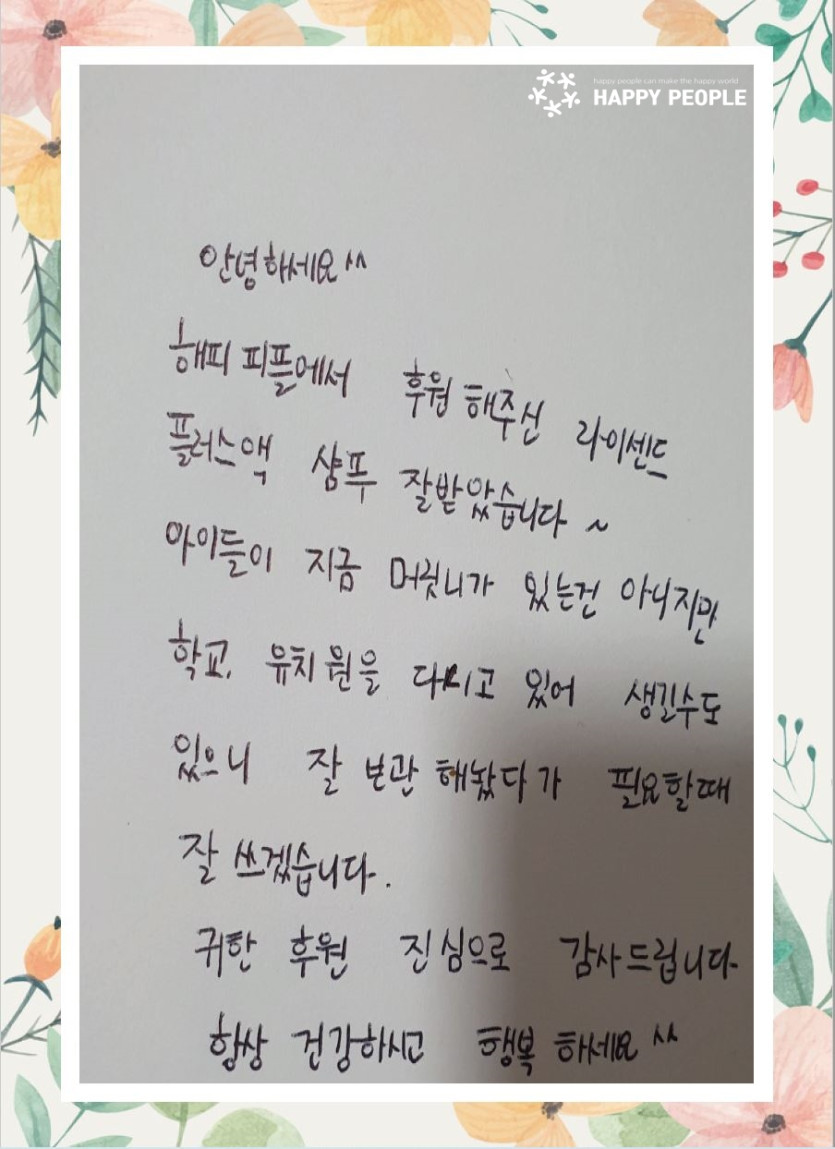 happy people can make the happy world
HAPPY PEOPLE
안녕하세요 ^^
해피 피플에서 후원 해주신 라이센드
플러스액 샴푸 잘받았습니다 ~
아이들이 지금 머릿니가 있는건 아니지만
학교, 유치원을 다니고 있어 생길수도
있으니 잘 보관 해놨다가 필요할때
잘 쓰겠습니다.
귀한 후원 진심으로 감사드립니다
항상 건강하시고 행복 하세요 ^^